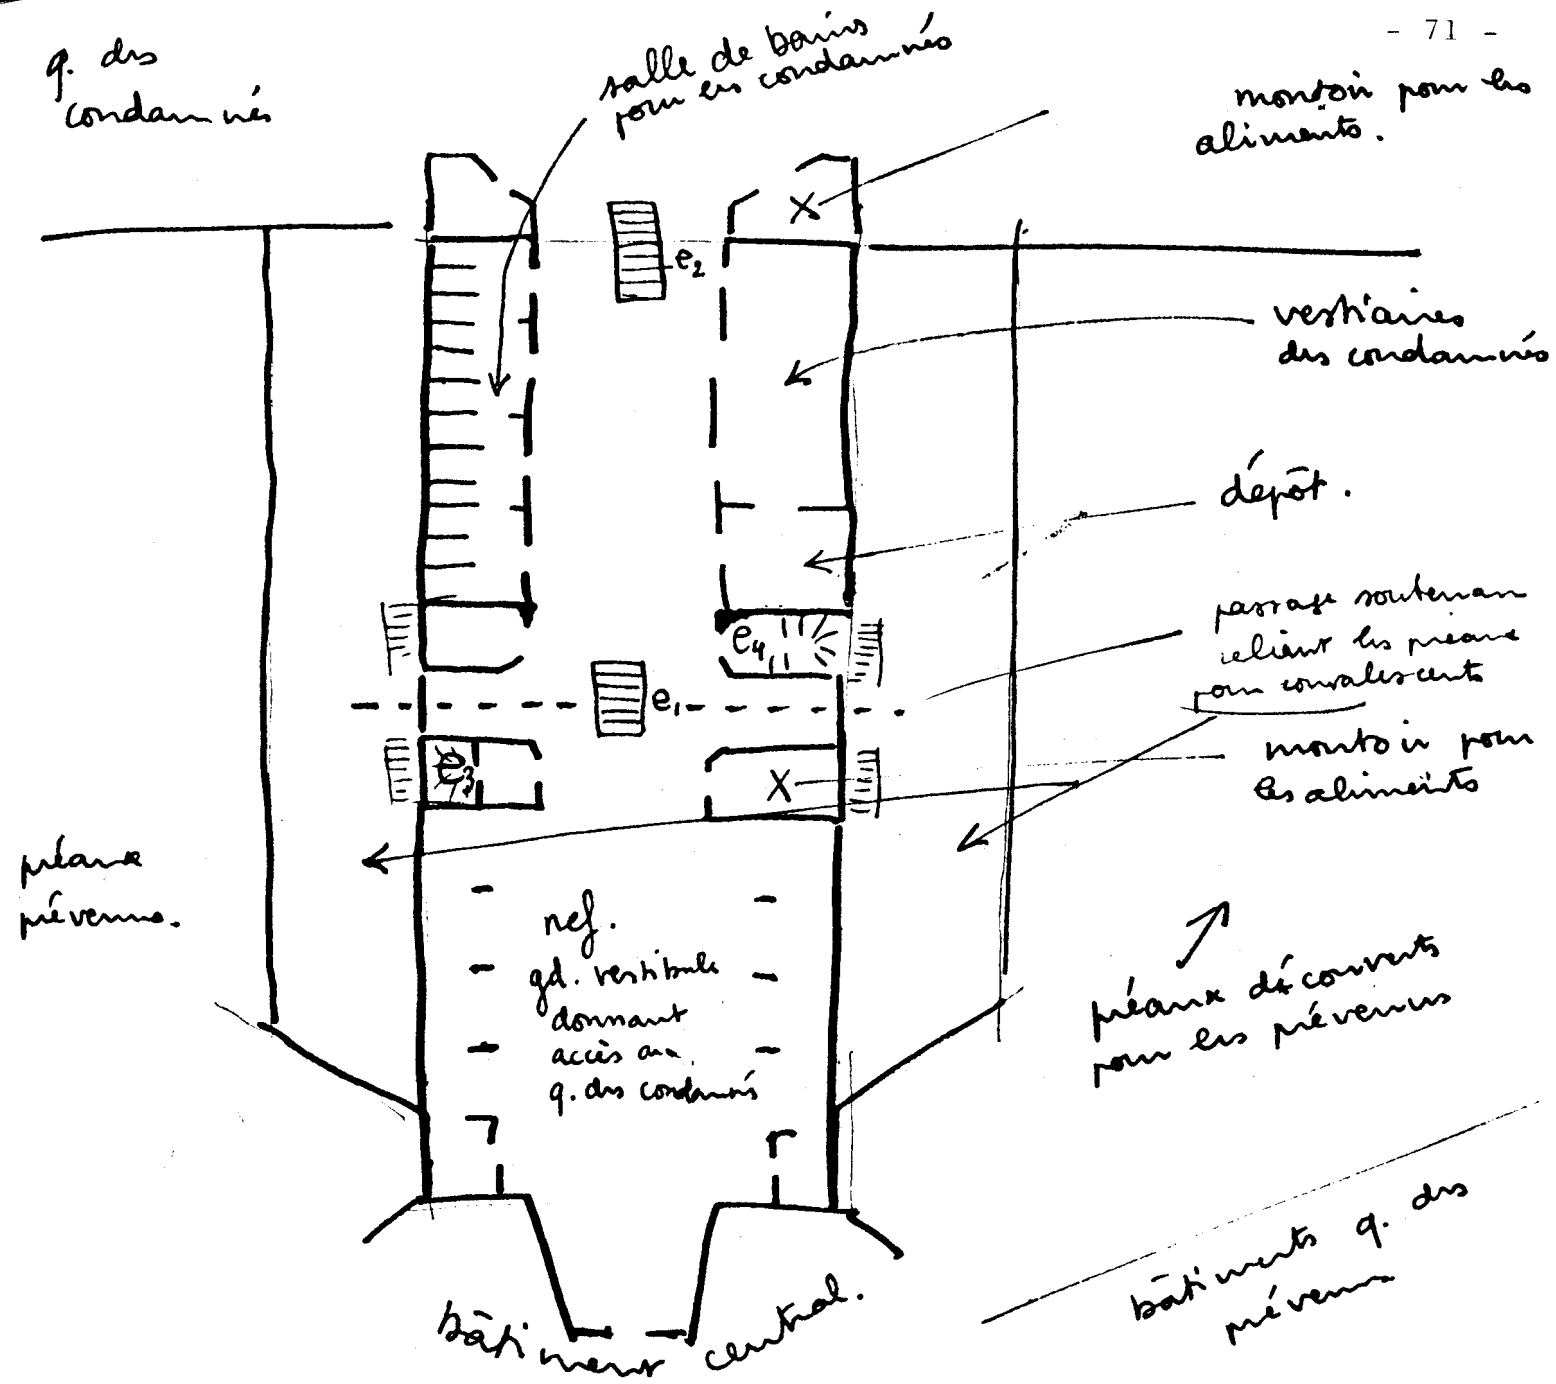 - 71 -
q. des
condamnés
salle de bains
pour les condamnés
montoir pour les
aliments.
e2
vestiaires
des condamnés
dépôt.
passage souterrain
reliant les préaux
pour convalescents
e4
e1
montoir pour
les aliments
e3
X
X
préaux
prévenus.
nef.
gd. vestibule
donnant
accès au
q. des condamnés
préaux découverts
pour les prévenus
bâtiments q. des
prévenus
bâtiment central.